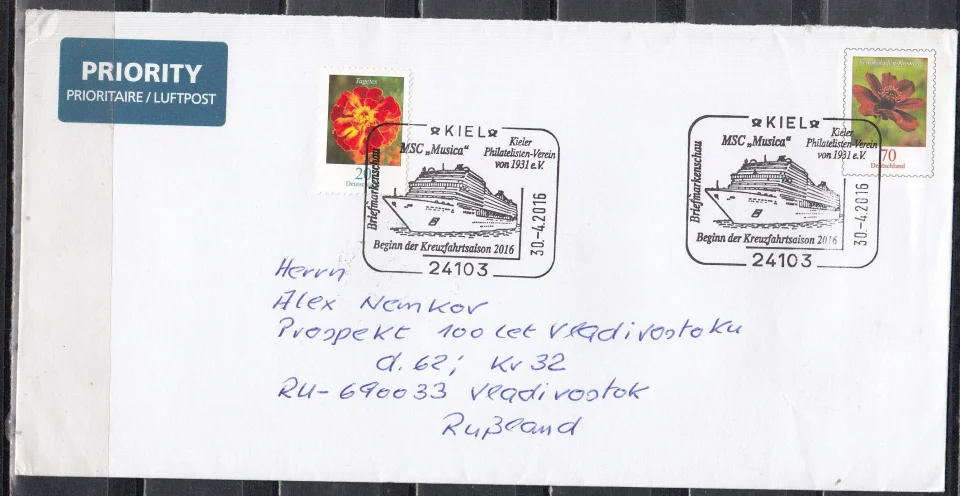 PRIORITY
PRIORITAIRE / LUFTPOST
Tagetes
20
Deutschland
Schokoladen-Kosmee
70
Deutschland
KIEL
MSC „Musica“
Kieler
Philatelisten-Verein
von 1931 e.V.
Briefmarkenschau
Beginn der Kreuzfahrtsaison 2016
30.-4.2016
24103
KIEL
MSC „Musica“
Kieler
Philatelisten-Verein
von 1931 e.V.
Briefmarkenschau
Beginn der Kreuzfahrtsaison 2016
30.-4.2016
24103
Herrn
Alex Nemkov
Prospekt 100 Let Vladivostoku
d. 62; Kv 32
RU-690033 Vladivostok
Rußland